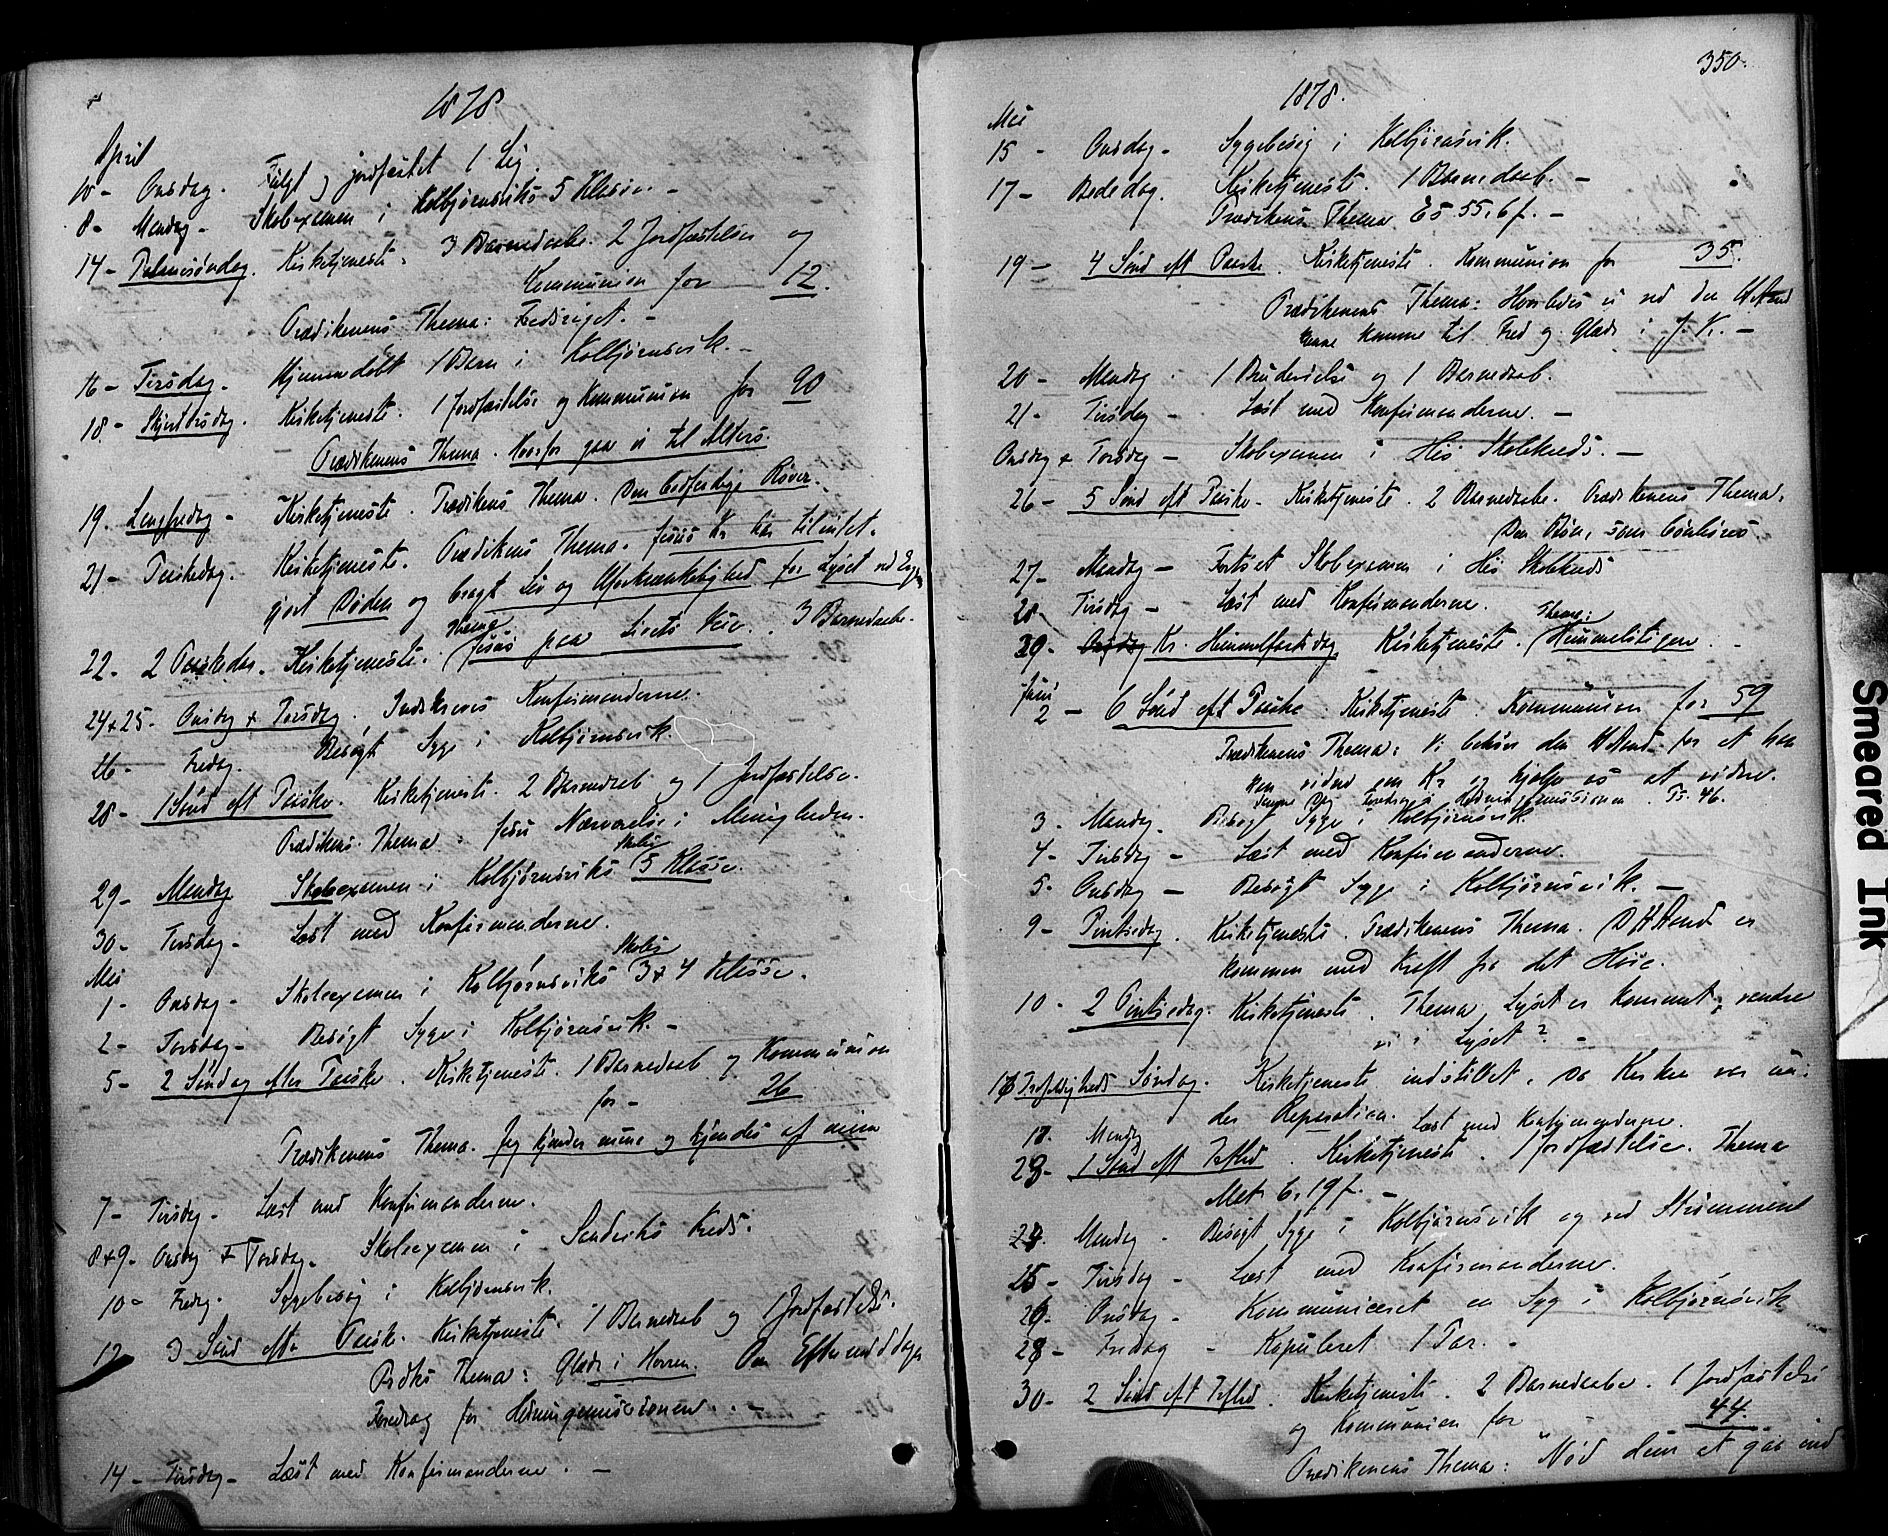 1878
April
10 - Onsdag. Fulgt og jordfæstet 1 Lig.
8 - Mandag - Skolexamen i Kolbjørnsviks 5 Klasse -
14 - Palmesøndag. Kirketjeneste. 3 Barnedaabe. 2 Jordfæstelser og
Kommunion for 12.
Prædikenens Thema: Fredsriget. -
16 - Tirsdag. Hjemmedøbt 1 Barn i Kolbjørnsvik. -
18. - Skjærtorsdag. Kirketjeneste. 1 Jordfæstelse og Kommunion for 90
Prædikenens Thema. Hvorfor gaa vi til Alters.
19. Langfredag - Kirketjeneste. Prædikens Thema. Den bodfærdige Røver.
21 - Paaskedag. Kirketjeneste. Prædikens Thema. Jesus Kr har tilintet-
gjort Døden og bragt Liv og Uforkrænkelighed for Lyset ved
22. - 2 Paaskedag. Kirketjeneste. Thema Jesus paa Livets Vei. 3 Barnedaabe.
24 & 25 - Onsdag & Torsdag. Indskreves Konfirmanderne.
26 - Fredag. Besøgt Syge i Kolbjørnsvik.
28 - 1 Sønd eft Paaske. Kirketjeneste. 2 Barnedaab og 1 Jordfæstelse.
Prædikens Thema: Jesu Nærværelse i Menigheden.
29 - Mandag Skolexamen i Kolbjørnsviks Skoles 5 Klasse.
30 - Tirsdag - Læst med Konfirmanderne.
Mai
1 - Onsdag - Skolexamen i Kolbjørnsviks Skoles 3 & 4 Klasse.
2 - Torsdag - Besøgt Syge i Kolbjørnsvik. -
5 - 2 Søndag efter Paaske. Kirketjeneste. 1 Barnedaab og Kommunion
for - 26
Prædikenens Thema. Jeg kjender mine og kjendes af mine
7 - Tirsdag - Læst med Konfirmanderne.
8 & 9 - Onsdag & Torsdag. Skolexamen i Sandviks Kreds.
10 - Fredag. Sygebesøg i Kolbjørnsvik.
12 3 Sønd efter Paaske. Kirketjeneste. 1 Barnedaab og 1 Jordfæstelse.
Prdks Thema: Glæde i Herren. Om Eftermiddagen
Foredrag for Hedningemissionen. -
14 - Tirsdag - Læst med Konfirmanderne. -
350.
1878.
Mai
15 - Onsdag - Sygebesøg i Kolbjørnsvik.
17 - Bededag. Kirketjeneste. 1 Barnedaab. -
Prædikens Thema Es 55, 6 f. -
19 - 4 Sønd eft Paaske. Kirketjeneste. Kommunion for 35.
Prædikenens Thema: Hvorledes vi ved den H Aand
kunne komme til Fred og Glæde i J. Kr. -
20 - Mandag. 1 Brudevielse og 1 Barnedaab.
21 - Tirsdag - Læst med Konfirmanderne. -
Onsdag & Torsdag - Skolexamen i His Skolekreds. -
26 - 5 Sønd eft Paaske. Kirketjeneste. 2 Barnedaabe. Prædikenens Thema.
Den Bøn, som bønhøres
27 - Mandag - Fortsat Skolexamen i His Skolekreds
28 - Tirsdag - Læst med Konfirmanderne.
30 - Kr. Himmelfartsdag Kirketjeneste. Thema: Himmelstigen -
Juni
2 - 6 Sønd eft Paaske. Kirketjeneste. Kommunion for 59
Prædikenens Thema: Vi behøve den H Aand for at han
kan vidne om Kr og hjælpe os at vidne.
Hedningemissionen. Ps. 46.
3 - Mandag. Besøgt Syge i Kolbjørnsvik.
4 - Tirsdag - Læst med Konfirmanderne.
5 - Onsdag - Besøgt Syge i Kolbjørnsvik. -
9 - Pintsedag. Kirketjeneste. Prædikenens Thema. D H Aand er
kommen med Kraft fra det Høie.
10 - 2 Pintsedag. Kirketjeneste. Thema Lyset er kommet, vandre
vi i Lyset? -
16 Trefoldigheds Søndag. Kirketjeneste indstillet, da Kirken var un-
der Reparation.
17. Mandag Læst med Konfirmanderne.
23 - 1 Sønd eft Trefld. Kirketjeneste. 1 Jordfæstelse. Thema
Mat 6, 19 f. -
24. Mandag - Besøgt Syge i Kolbjørnsvik og ved Strømmene
25 - Tirsdag - Læst med Konfirmanderne.
26 - Onsdag - Kommuniceret en Syg i Kolbjørnsvik
28 - Fredag - Kopuleret 1 Par. -
30 - 2 Sønd eft Trefld. Kirketjeneste. 2 Barnedaabe. 1 Jordfæstelse
og Kommunion for 44.
Prædikenens Thema: "Nød dem at gaa ind
Smeared Ink